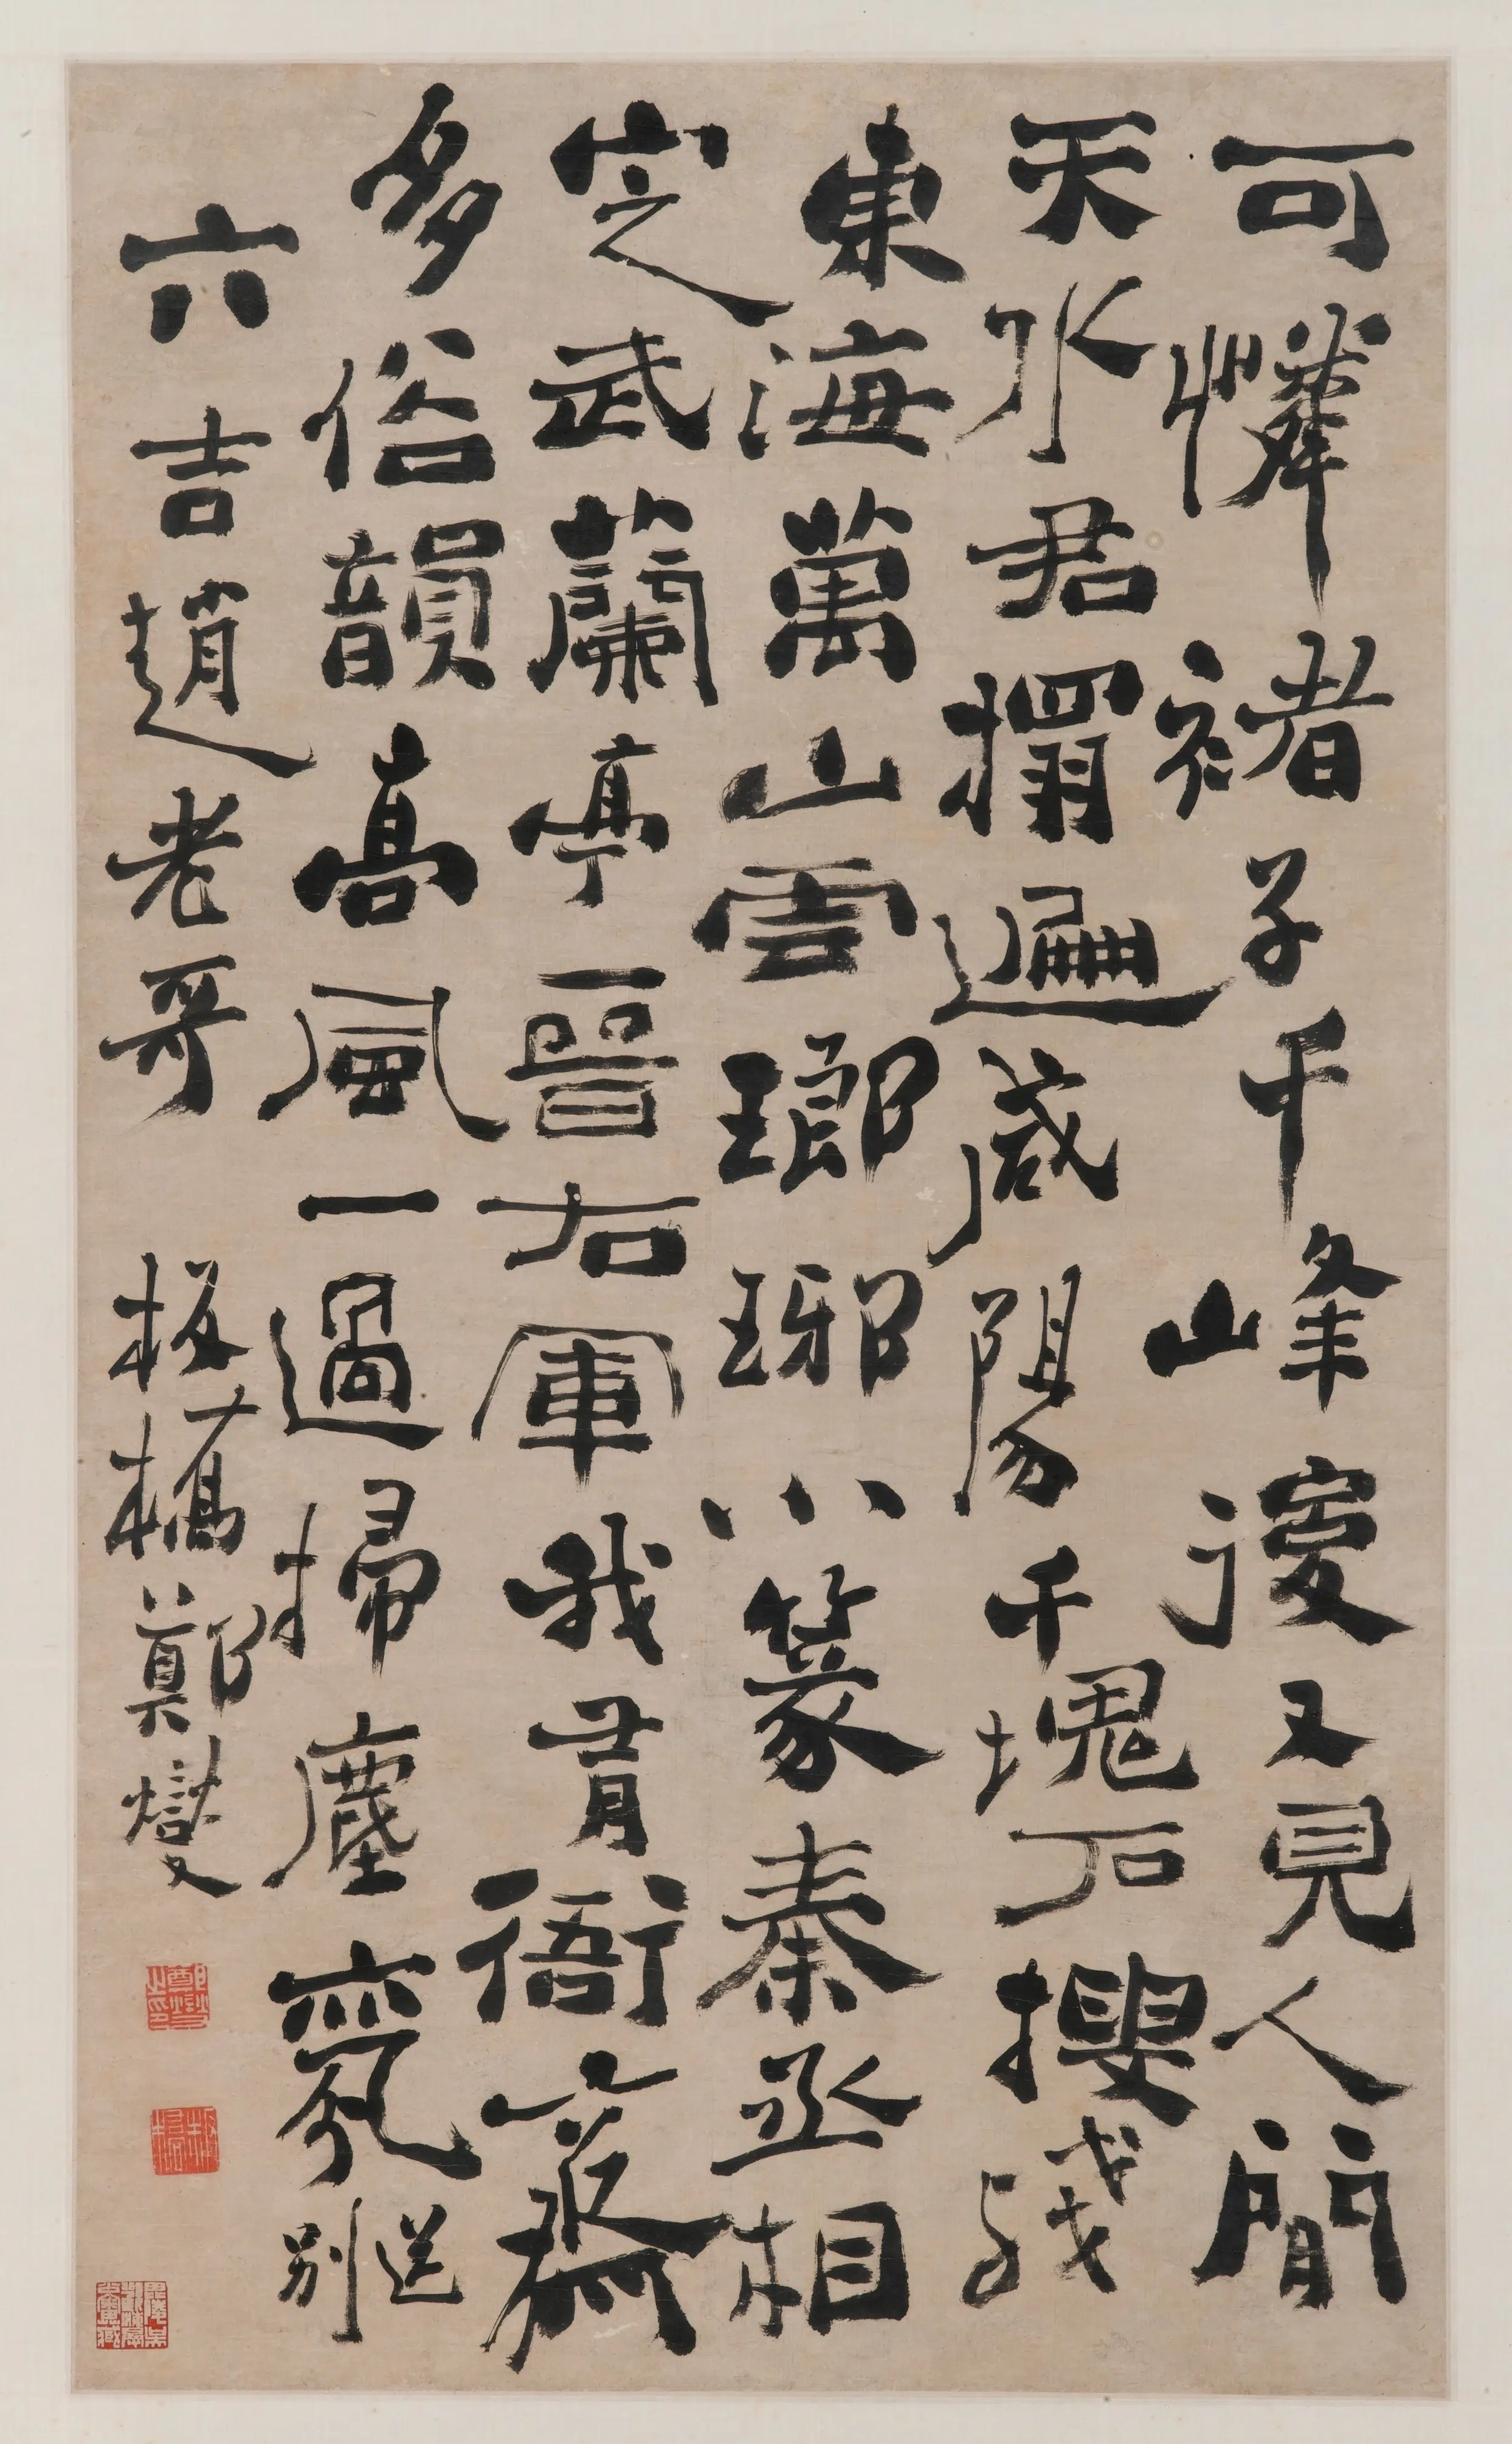 可憐褚子千峰後又見人間
天水君搨遍咸陽千塊石搜殘
東海萬山雲瑯琊小篆秦丞相
定武蘭亭晉右軍我有衙齋
多俗韻高風一過掃塵氛送別
六吉趙老哥 板橋鄭燮
鄭燮之印